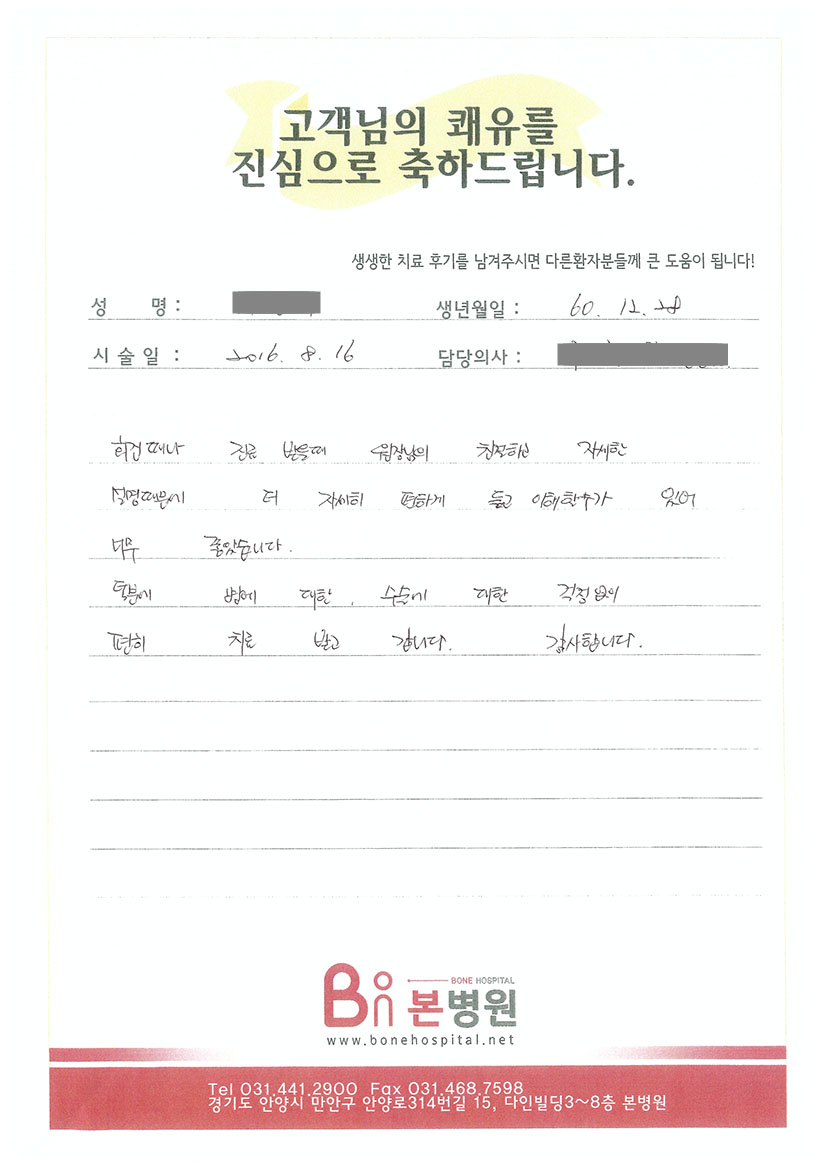 고객님의 쾌유를
진심으로 축하드립니다.
생생한 치료 후기를 남겨주시면 다른환자분들께 큰 도움이 됩니다!
성 명 :
생년월일 : 60. 12. 28
시 술 일 : 2016. 8. 16
담당의사 :
회진 때나 진료 받을때 원장님의 친절하고 자세한
설명때문에 더 자세히 편하게 듣고 이해할수가 있어
너무 좋았습니다.
덕분에 병에 대한, 수술에 대한 걱정 없이
편히 치료 받고 갑니다. 감사합니다.
BONE HOSPITAL
Bon 본병원
www.bonehospital.net
Tel 031.441.2900 Fax 031.468.7598
경기도 안양시 만안구 안양로314번길 15, 다인빌딩3~8층 본병원